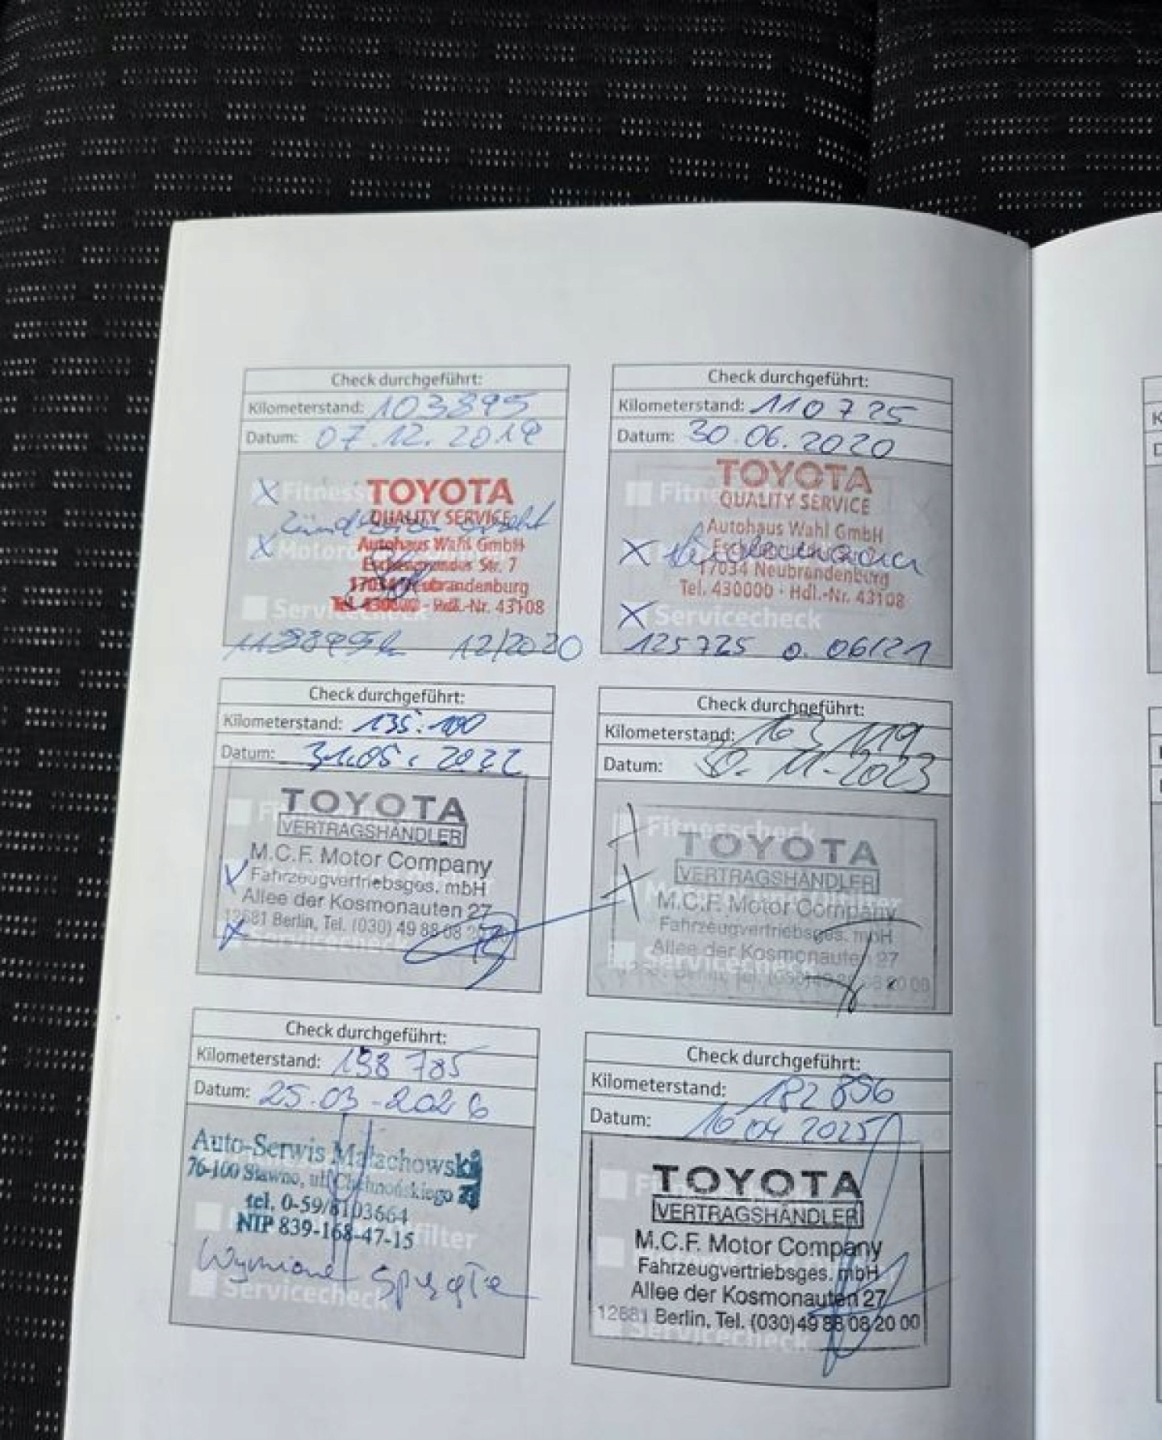 Check durchgeführt:
Kilometerstand: 103895
Datum: 07.12.2019
Fitness
TOYOTA
QUALITY SERVICE
Motor
Autohaus Wahl GmbH
Str. 7
17034 Neubrandenburg
Tel. 430000 - Hdl.-Nr. 43108
Service
12/2020
Check durchgeführt:
Kilometerstand: 110725
Datum: 30.06.2020
Fitn
TOYOTA
QUALITY SERVICE
Autohaus Wahl GmbH
17034 Neubrandenburg
Tel. 430000 - Hdl.-Nr. 43108
Servicecheck
125725 o. 06/21
Check durchgeführt:
Kilometerstand: 135.100
Datum: 31.05.2022
TOYOTA
VERTRAGSHÄNDLER
M.C.F. Motor Company
Fahrzeugvertriebsges. mbH
Allee der Kosmonauten 27
12681 Berlin, Tel. (030) 49 88 08 20
Servicecheck
Check durchgeführt:
Kilometerstand: 163119
Datum: 30.11.2023
Fitnesscheck
TOYOTA
VERTRAGSHÄNDLER
M.C.F. Motor Company
Fahrzeugvertriebsges. mbH
Allee der Kosmonauten 27
Servicecheck
Check durchgeführt:
Kilometerstand: 198 785
Datum: 25.03-2026
Auto-Serwis Małachowski
76-100 Sławno, ul.
tel. 0-59/8103664
NIP 839-168-47-15
filter
Servicecheck
Check durchgeführt:
Kilometerstand: 182 856
Datum: 16 04 2025
TOYOTA
VERTRAGSHÄNDLER
M.C.F. Motor Company
Fahrzeugvertriebsges. mbH
Allee der Kosmonauten 27
12681 Berlin, Tel. (030) 49 88 08 20 00
Servicecheck